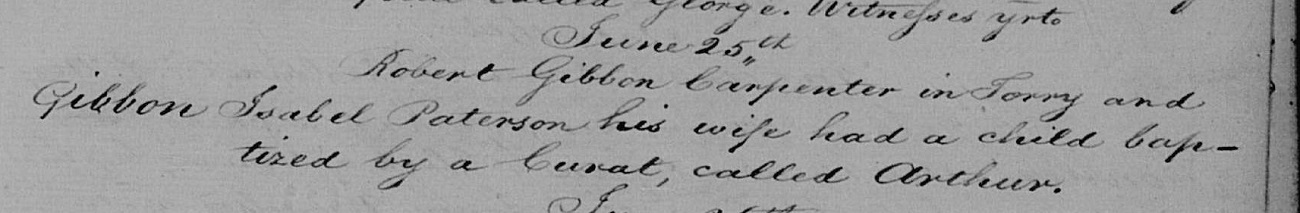 called George. Witnesses yrto
June 25th
Robert Gibbon Carpenter in Torry and
Gibbon Isabel Paterson his wife had a child bap-
tized by a Curat, called Arthur.